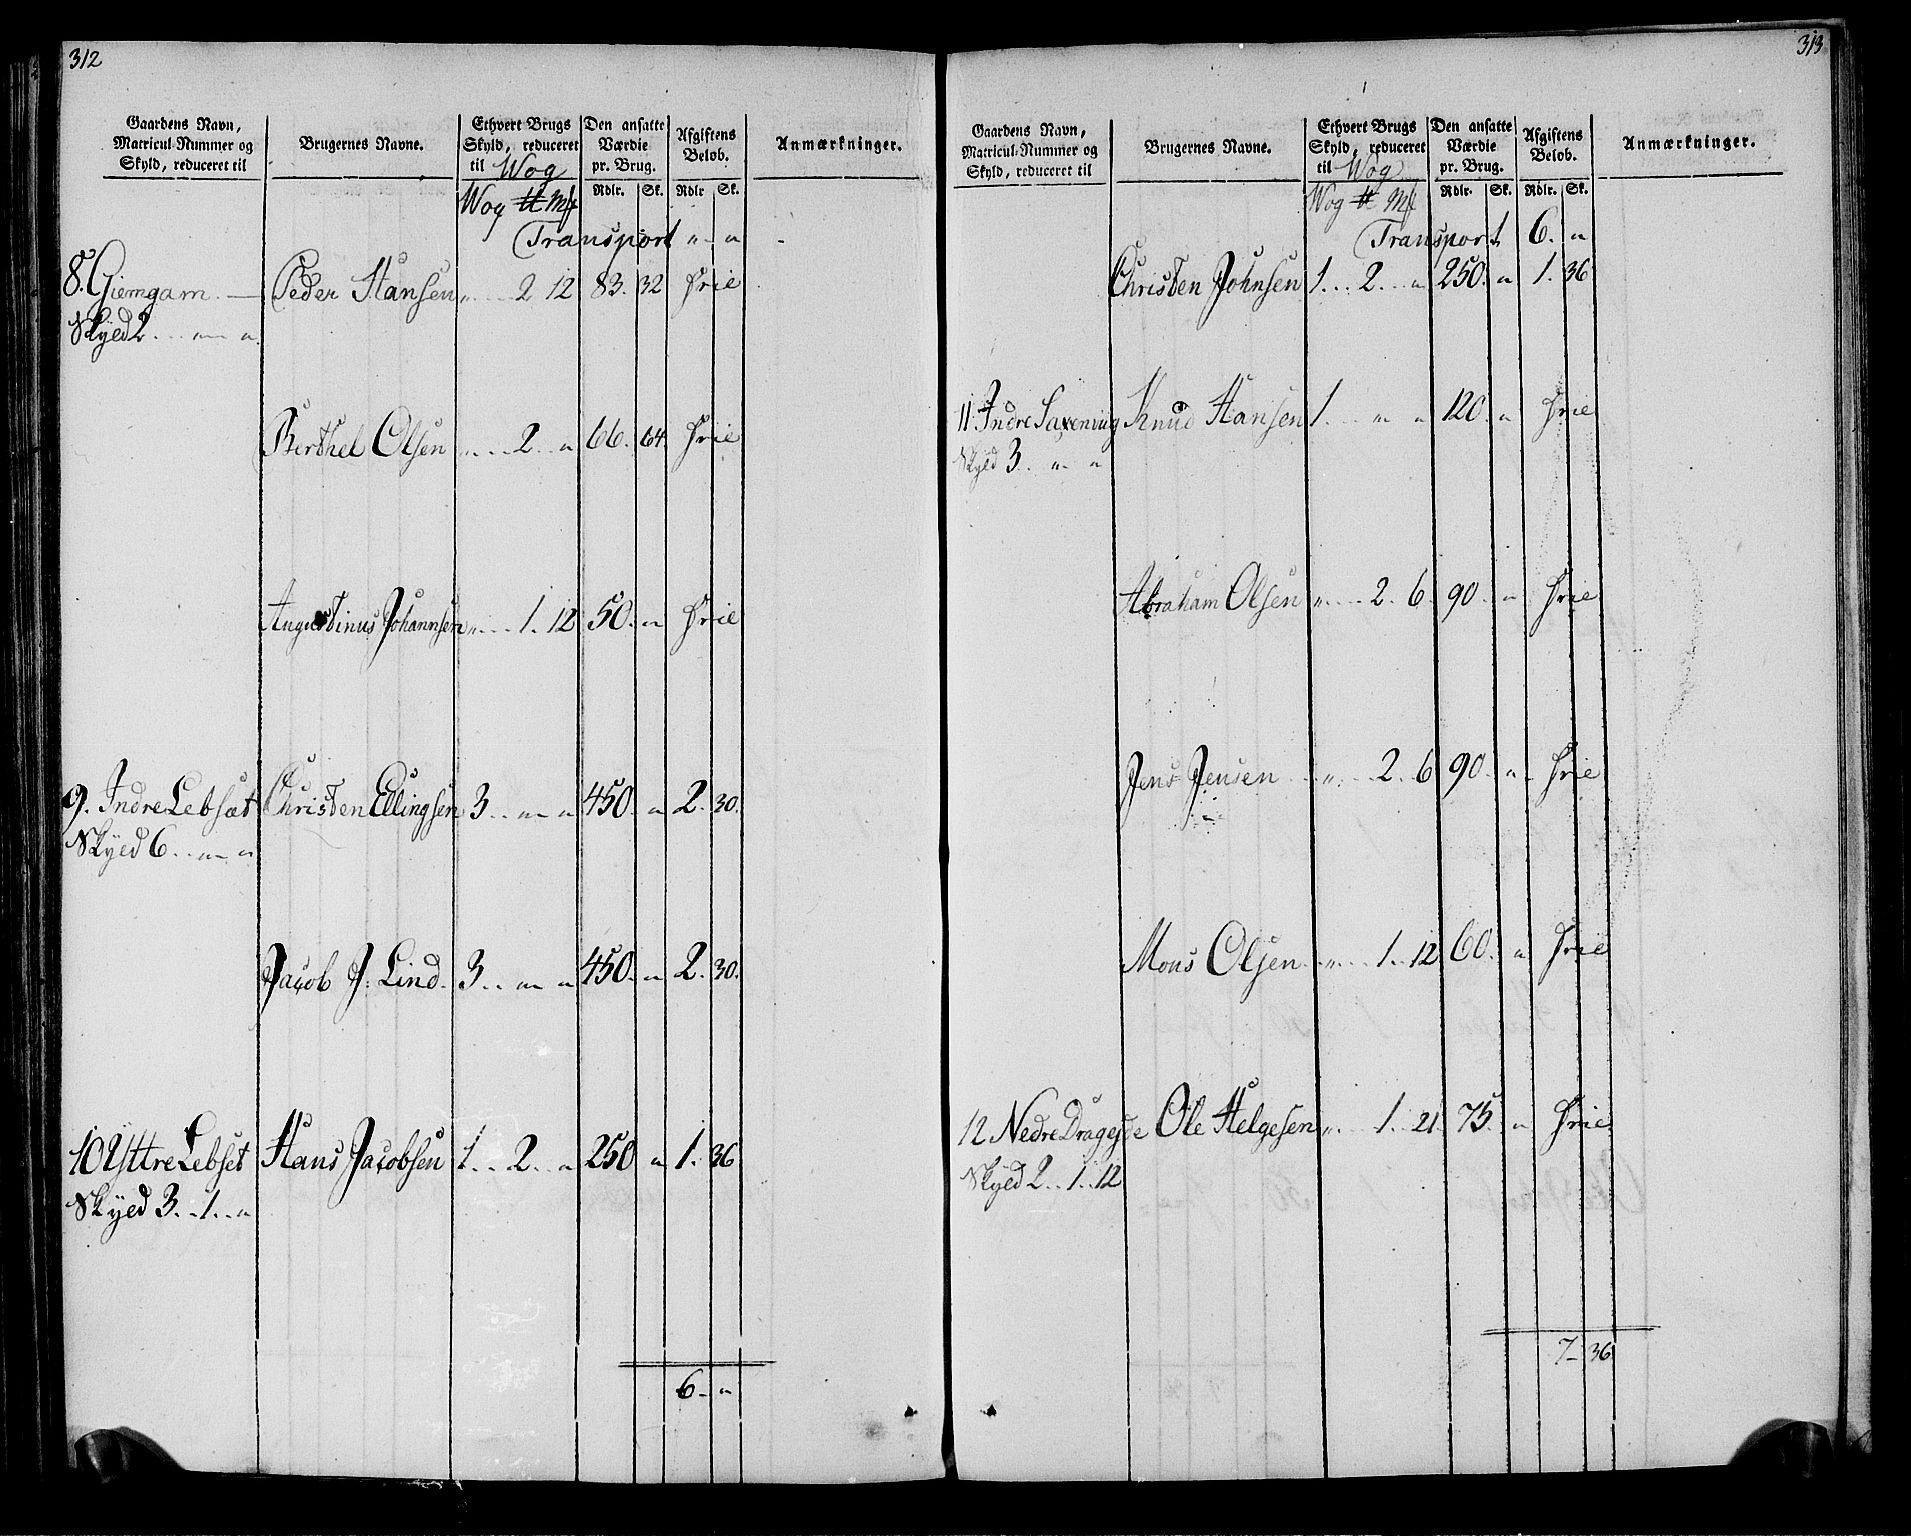 312
Gaardens Navn, Matricul-Nummer og Skyld, reduceret til | Brugernes Navne. | Ethvert Brugs Skyld, reduceret til Wog | Den ansatte Værdie pr. Brug. | Afgiftens Beløb. | Anmærkninger.
Wog ℔ Mk | Rdlr. | Sk. | Rdlr | Sk.
Transport " "
8. Giemgam. Peder Hansen " 2 12 83. 32 Frie
Skyld 2 " "
Berthel Olsen " 2 " 66. 64. Frie
Augustinus Johannsen " 1. 12 50. " Frie
9. Indre Lebsæt Christen Ellingsen 3 " " 450. " 2. 30.
Skyld 6 " "
Jacob J: Lind. 3 " " 450. " 2. 30.
10 Yttre Lebset Hans Jacobsen 1 2 " 250 " 1. 36
Skyld 3 1 "
6 "
313
Gaardens Navn, Matricul-Nummer og Skyld, reduceret til | Brugernes Navne. | Ethvert Brugs Skyld, reduceret til Wog | Den ansatte Værdie pr. Brug. | Afgiftens Beløb. | Anmærkninger.
Wog ℔ Mk | Rdlr. | Sk. | Rdlr. | Sk.
Transport 6. "
Christen Johnsen 1 2 " 250. " 1. 36
11. Indre Saxenvig Knud Hansen 1 " " 120. " Frie
Skyld 3 " "
Abraham Olsen " 2. 6. 90. " Frie
Jens Jensen " 2. 6 90. " Frie
Mons Olsen " 1. 12 60. " Frie
12 Nedre Drageide Ole Helgesen " 1. 21. 75. " Frie
Skyld 2 1 12
7 36